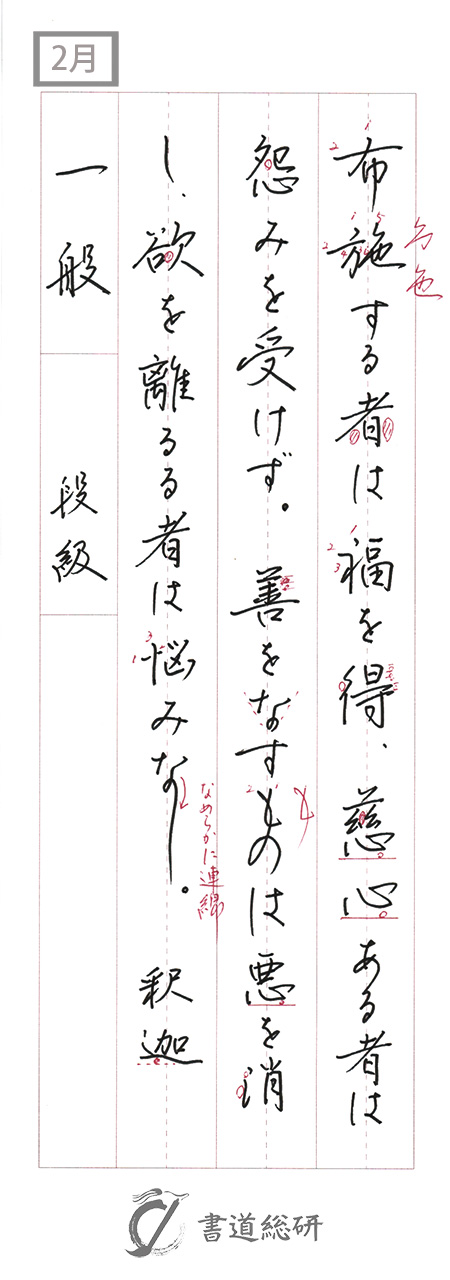 2月
布施する者は福を得、慈心ある者は
怨みを受けず。善をなすものは悪を消
し、欲を離るる者は悩みなし。 釈迦
一般
段級
なめらかに連綿
書道総研